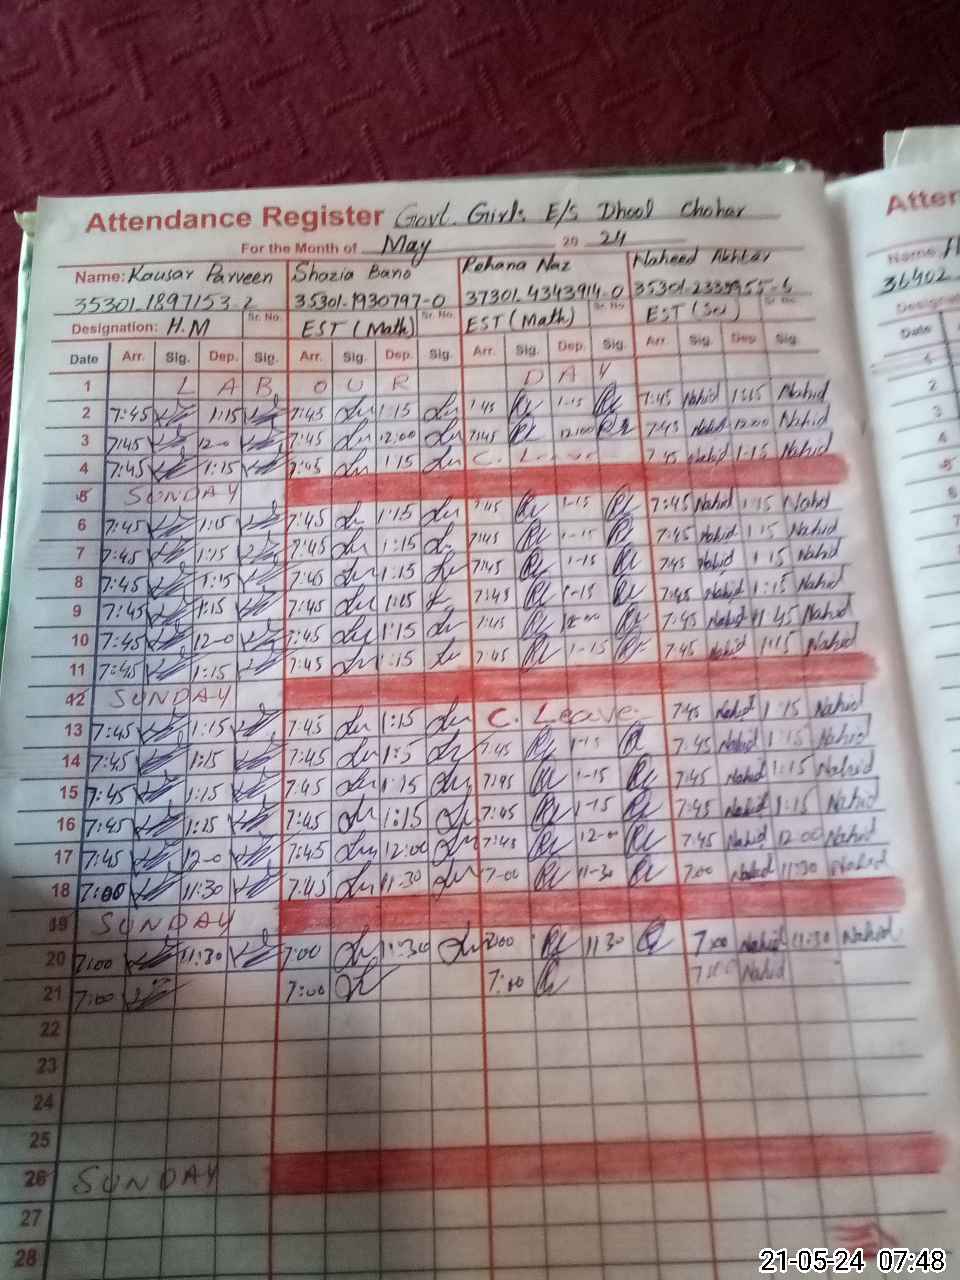 Attendance Register Govt. Girls E/S Dhool Chohar
For the Month of May 20 24
Name: Kausar Parveen Shazia Bano Rehana Naz Naheed Akhtar
35301-1897153-2 35301-1930797-0 37301-4343914-0 35301-
Designation: H.M Sr. No. EST (Math) Sr. No. EST (Math) Sr. No. EST (Sci)
Date Arr. Sig. Dep. Sig. Arr. Sig. Dep. Sig. Arr. Sig. Dep. Sig. Arr. Sig. Dep. Sig.
1 LABOUR DAY
2 7:45 1:15 7:45 1:15 7:45 1-15 7:45 Nahid 1:15 Nahid
3 7:45 12-0 7:45 12:00 7:45 12:00 7:45 Nahid 12:00 Nahid
4 7:45 1:15 7:45 1:15 C. Leave 7:45 Nahid 1-15 Nahid
5 SUNDAY
6 7:45 1:15 7:45 1:15 7:45 1-15 7:45 Nahid 1:15 Nahid
7 7:45 1:15 7:45 1:15 7:45 1-15 7:45 Nahid 1:15 Nahid
8 7:45 1:15 7:45 1:15 7:45 1-15 7:45 Nahid 1:15 Nahid
9 7:45 1:15 7:45 1:15 7:45 1-15 7:45 Nahid 1:15 Nahid
10 7:45 12-0 7:45 1:15 7:45 7:45 Nahid Nahid
11 7:45 1:15 7:45 1:15 7:45 1-15 7:45 Nahid 1:15 Nahid
12 SUNDAY
13 7:45 1:15 7:45 1:15 C. Leave 7:45 Nahid 1:15 Nahid
14 7:45 1:15 7:45 1:5 7:45 1-15 7:45 Nahid 1:15 Nahid
15 7:45 1:15 7:45 1:15 7:45 1-15 7:45 Nahid 1:15 Nahid
16 7:45 1:15 7:45 1:15 7:45 1-15 7:45 Nahid 1:15 Nahid
17 7:45 12-0 7:45 12:00 7:45 12-00 7:45 Nahid 12:00 Nahid
18 7:00 11:30 7:45 11:30 7-00 11-30 7:00 Nahid 11:30 Nahid
19 SUNDAY
20 7:00 11:30 7:00 11:30 7:00 11 30 7:00 Nahid 11:30 Nahid
21 7:00 7:00 7:00 7:00 Nahid
22
23
24
25
26 SUNDAY
27
28
Atten
Name
36402
Designat
Date
1
2
3
4
5
6
7
21-05-24 07:48